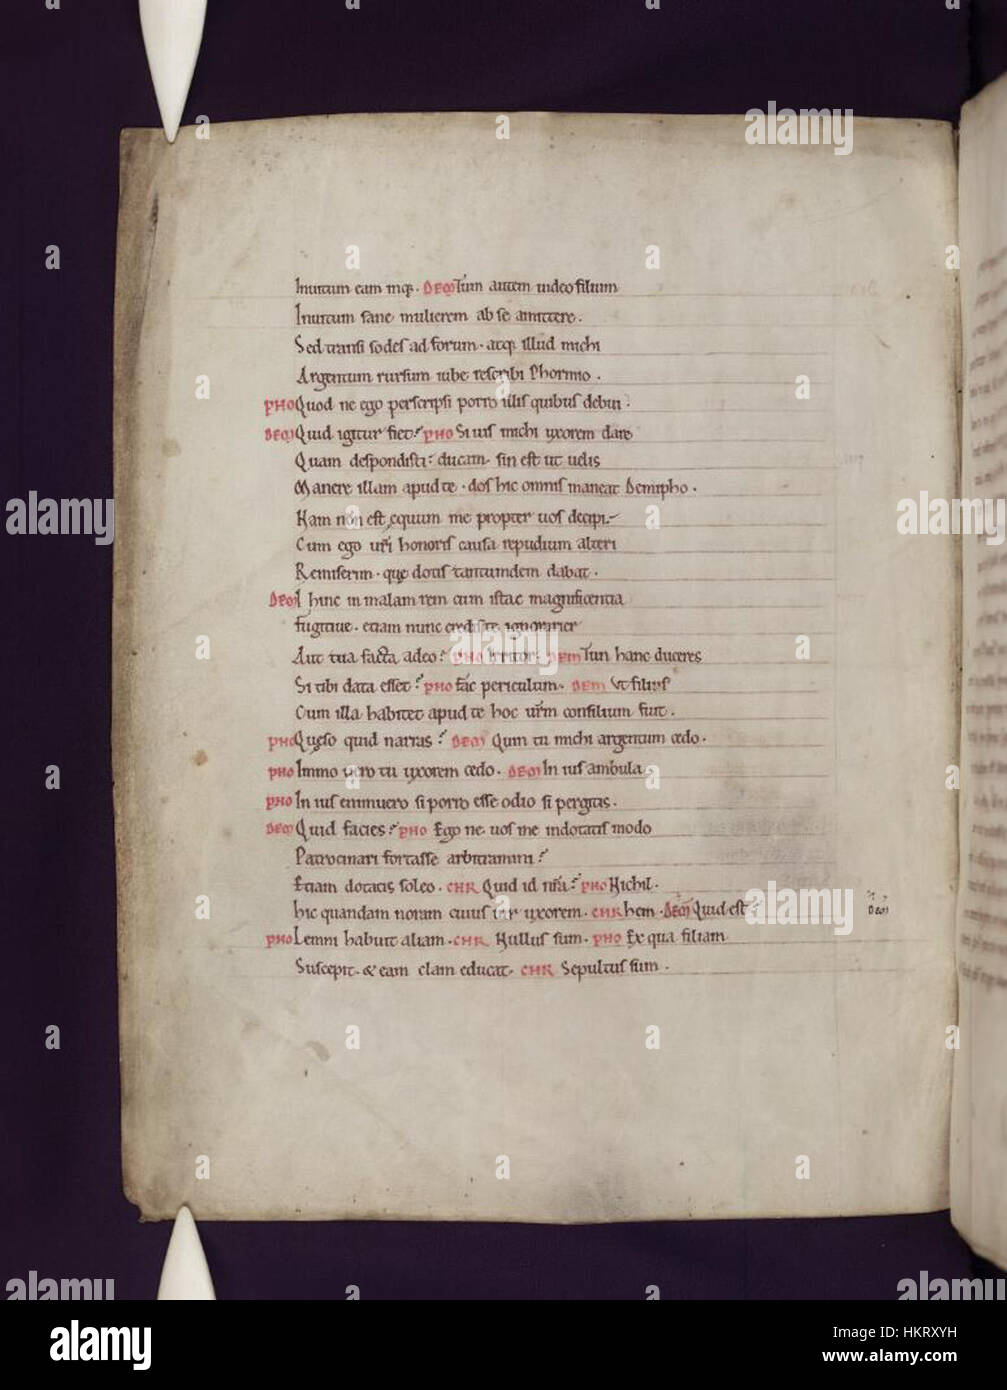 Inuitum eam inq;. DEM Tum autem uideo filium
Inuitum sane mulierem ab se amittere.
Sed transi sodes ad forum. atq; illud michi
Argentum rursum iube rescribi Phormio.
PHO Quod ne ego perscripsi porro illis quibus debui.
DEM Quid igitur fiet? PHO Si uis michi uxorem dare
Quam despondisti? ducam. sin est ut uelis
Manere illam apud te. dos hic omnis maneat Demipho.
Nam non est equum me propter uos decipi.
Cum ego uri honoris causa repudium alteri
Remiserim. que dotis tantumdem dabat.
DEM I hinc in malam rem cum istac magnificentia
fugitiue. etiam nunc credis te ignorarier
Aut tua facta adeo? PHO Irritor. DEM Tun hanc duceres
Si tibi data esset? PHO fac periculum. DEM Vt filius
Cum illa habitet apud te hoc urm consilium fuit.
PHO Queso quid narras? DEM Quin tu michi argentum cedo.
PHO Immo uero tu uxorem cedo. DEM In ius ambula.
PHO In ius enimuero si porro esse odio si pergitis.
DEM Quid facies? PHO Ego ne. uos me indotatis modo
Patrocinari fortasse arbitramini?
Etiam dotatis soleo. CHR Quid id nra? PHO Nichil.
hic quandam noram cuius uir uxorem. CHR hem. DEM Quid est?
DEM
PHO Lemni habuit aliam. CHR Nullus sum. PHO Ex qua filiam
Suscepit. & eam clam educat. CHR Sepultus sum.
alamy
a
alamy
Image ID: HKRXYH
www.alamy.com